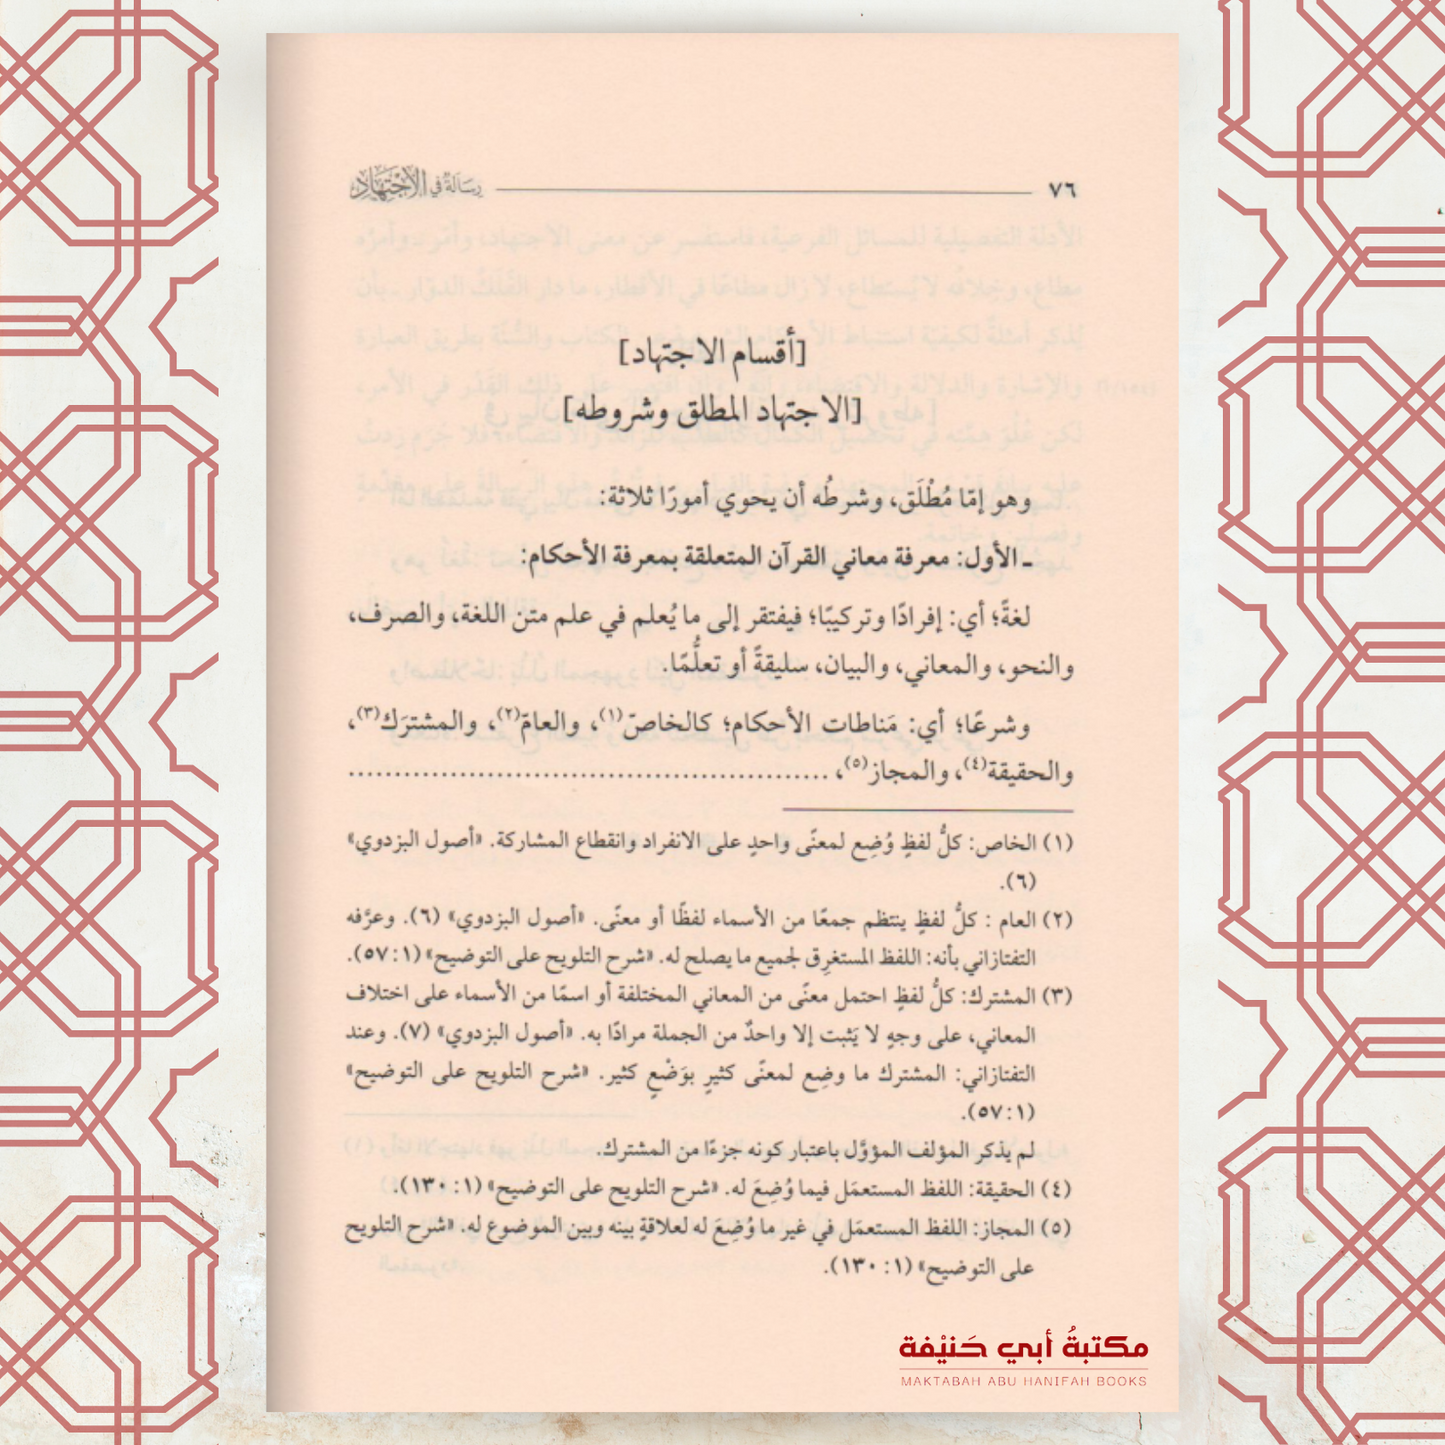 ٧٦ رسالة في الاجتهاد
[أقسام الاجتهاد]
[الاجتهاد المطلق وشروطه]
وهو إمّا مُطْلَق، وشرطُه أن يحوي أمورًا ثلاثة:
ـ الأول: معرفة معاني القرآن المتعلقة بمعرفة الأحكام:
لغةً؛ أي: إفرادًا وتركيبًا؛ فيفتقر إلى ما يُعلم في علم متن اللغة، والصرف،
والنحو، والمعاني، والبيان، سليقةً أو تعلُّمًا.
وشرعًا؛ أي: مَناطات الأحكام؛ كالخاصّ(١)، والعامّ(٢)، والمشترَك(٣)،
والحقيقة(٤)، والمجاز(٥)، ....................................................
(١) الخاص: كلُّ لفظٍ وُضِع لمعنًى واحدٍ على الانفراد وانقطاع المشاركة. «أصول البزدوي»
(٦).
(٢) العام : كلُّ لفظٍ ينتظم جمعًا من الأسماء لفظًا أو معنًى. «أصول البزدوي» (٦). وعرَّفه
التفتازاني بأنه: اللفظ المستغرِق لجميع ما يصلح له. «شرح التلويح على التوضيح» (١: ٥٧).
(٣) المشترك: كلُّ لفظٍ احتمل معنًى من المعاني المختلفة أو اسمًا من الأسماء على اختلاف
المعاني، على وجهٍ لا يَثبت إلا واحدٌ من الجملة مرادًا به. «أصول البزدوي» (٧). وعند
التفتازاني: المشترك ما وضِع لمعنًى كثيرٍ بوَضْعٍ كثير. «شرح التلويح على التوضيح»
(١: ٥٧).
لم يذكر المؤلف المؤوَّل باعتبار كونه جزءًا من المشترك.
(٤) الحقيقة: اللفظ المستعمَل فيما وُضِعَ له. «شرح التلويح على التوضيح» (١: ١٣٠).
(٥) المجاز: اللفظ المستعمَل في غير ما وُضِعَ له لعلاقةٍ بينه وبين الموضوع له. «شرح التلويح
على التوضيح» (١: ١٣٠).
مكتبةُ أبي حَنيْفة
MAKTABAH ABU HANIFAH BOOKS